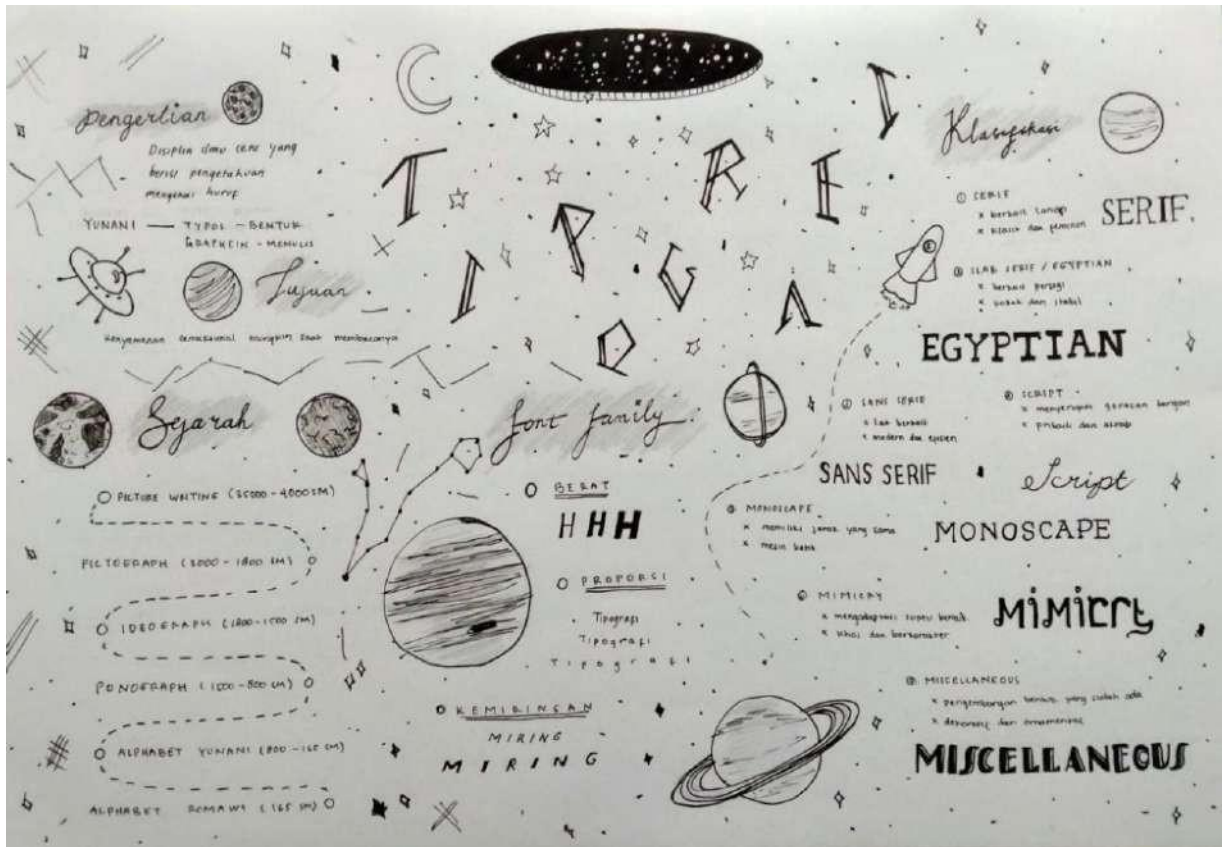 TIPOGRAFI
Pengertian
Disiplin ilmu seni yang
berisi pengetahuan
mengenai huruf
YUNANI — TYPOS - BENTUK
GRAPHEIN - MENULIS
Tujuan
Kenyamanan semaksimal mungkin saat membacanya
Sejarah
PICTURE WRITING (25000 - 4000 SM)
PICTOGRAPH (3000 - 1800 SM)
IDEOGRAPH (1800 - 1500 SM)
PONOGRAPH (1000 - 800 SM)
ALPHABET YUNANI (800 - 165 SM)
ALPHABET ROMAWI (165 SM)
font family
BERAT
H H H
PROPORSI
Tipografi
Tipografi
Tipografi
KEMIRINGAN
MIRING
MIRING
Klasifikasi
① SERIF
x berkait lancip
x klasik dan
SERIF
② SLAB SERIF / EGYPTIAN
x berkait persegi
x kokoh dan stabil
EGYPTIAN
SANS SERIF
x tak berkait
x modern dan efisien
SANS SERIF
SCRIPT
x menyerupai goresan tangan
x pribadi dan akrab
Script
MONOSCAPE
x memiliki jarak yang sama
x mesin ketik
MONOSCAPE
MIMICRY
x mengadaptasi suatu bentuk
x khas dan berkarakter
MiMiCRY
MISCELLANEOUS
x pengembangan bentuk yang sudah ada
x dekoratif dan ornamental
MISCELLANEOUS